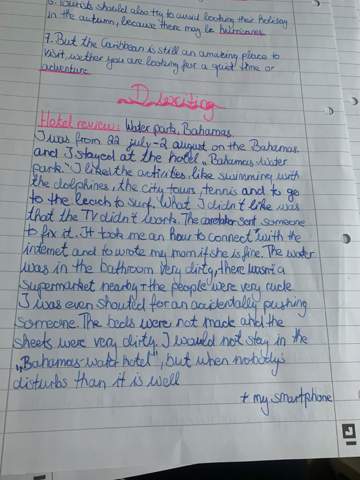 6. Tourists should also try to avoid booking their holiday
in the autumn, because there may be hurricanes
7. But the Caribbean is still an amazing place to
visit, wether you are looking for a quiet time or
adventure.
Hotel review: Water park, Bahamas
I was from 22 july-2 august on the Bahamas
and I stayed at the hotel „Bahamas Water
park." I liked the activities like swimming with
the dolphines, the city tours, tennis and to go
to the beach to surf. What I didn't like was
that the TV didn't work. The sent someone
to fix it. It took me an hour to connect with the
internet and to wrote my mom if she is fine. The water
was in the bathroom very dirty, there wasn't a
supermarket nearby + the people were very rude
I was even shouted for an accidentally pushing
someone. The beds were not made and the
sheets were very dirty. I would not stay in the
„Bahamas-water hotel", but when nobodys
disturbs than it is well
+ my smartphone